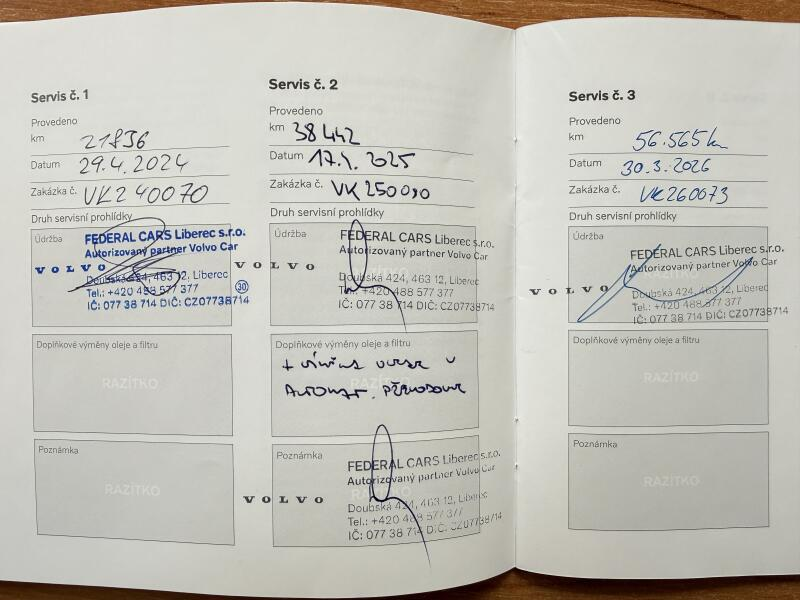 Servis č. 1
Provedeno
km 21896
Datum 29.4.2024
Zakázka č. VK240070
Druh servisní prohlídky
Údržba
FEDERAL CARS Liberec s.r.o.
Autorizovaný partner Volvo Car
VOLVO
Doubská 424, 463 12, Liberec
Tel.: +420 488 577 377
30
IČ: 077 38 714 DIČ: CZ07738714
Doplňkové výměny oleje a filtru
RAZÍTKO
Poznámka
RAZÍTKO
Servis č. 2
Provedeno
km 38 442
Datum 2025
Zakázka č.
Druh servisní prohlídky
Údržba
FEDERAL CARS Liberec s.r.o.
Autorizovaný partner Volvo Car
VOLVO
Doubská 424, 463 12, Liberec
Tel.: +420 488 577 377
IČ: 077 38 714 DIČ: CZ07738714
Doplňkové výměny oleje a filtru
+ výměna oleje v
automat. převodovce
Poznámka
FEDERAL CARS Liberec s.r.o.
Autorizovaný partner Volvo Car
VOLVO
Doubská 424, 463 12, Liberec
Tel.: +420 488 577 377
IČ: 077 38 714 DIČ: CZ07738714
Servis č. 3
Provedeno
km 56.565 km
Datum 30.3.2026
Zakázka č. VK260073
Druh servisní prohlídky
Údržba
FEDERAL CARS Liberec s.r.o.
Autorizovaný partner Volvo Car
VOLVO
Doubská 424, 463 12, Liberec
Tel.: +420 488 577 377
IČ: 077 38 714 DIČ: CZ07738714
Doplňkové výměny oleje a filtru
RAZÍTKO
Poznámka
RAZÍTKO